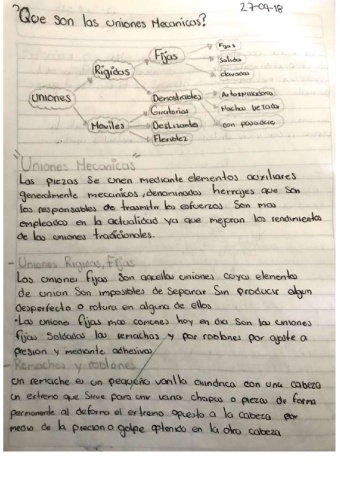 27-09-18
¿Que son las uniones Mecanicas?
Fijas
Solidas
clavadas
Fijas
Rigidas
Desmontables
Autorroscadores
uniones
Giratorias
Machos
Moviles
Deslizantes
con pasadores
Flexiblez
"Uniones Mecanicas"
Las piezas se unen mediante elementos auxiliares
generalmente mecanicos, denominados herrajes que son
los responsables de trasmitir los esfuerzos Son mas
empleados en la actualidad ya que mejoran los rendimientos
de las uniones tradicionales.
- Uniones Rigidas, Fijas
Las uniones fijas Son aquellas uniones cuyos elementos
de union Son imposibles de Separar Sin producir algun
desperfecto o rotura en alguna de ellas
Las unione fijas mas comunes hoy en dia Son las uniones
fijas Soldadas las remachas y por roblones por ajuste a
presion y mediante adhesivos
- Remaches y roblones
un remache es un pequeño varilla cilindrica con una cabeza
en extremo que Sirve para unir varias chapas o piezas de forma
permanente al deformar el extremo opuesto a la cabeza por
medio de la presion o golpe en la otra cabeza